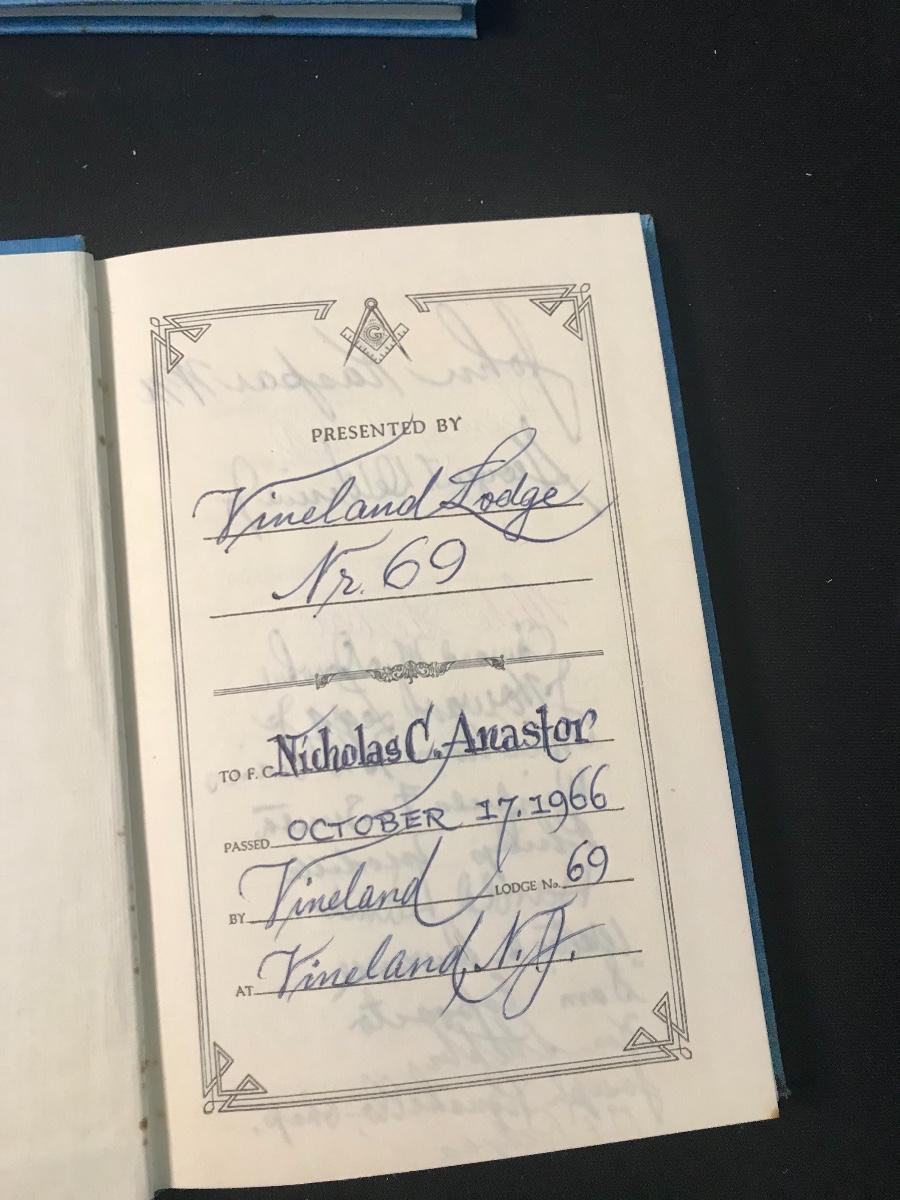 G
PRESENTED BY
Vineland Lodge
Nr. 69
TO F. C. Nicholas C. Anastor
PASSED OCTOBER 17. 1966
BY Vineland LODGE No. 69
AT Vineland, N. J.